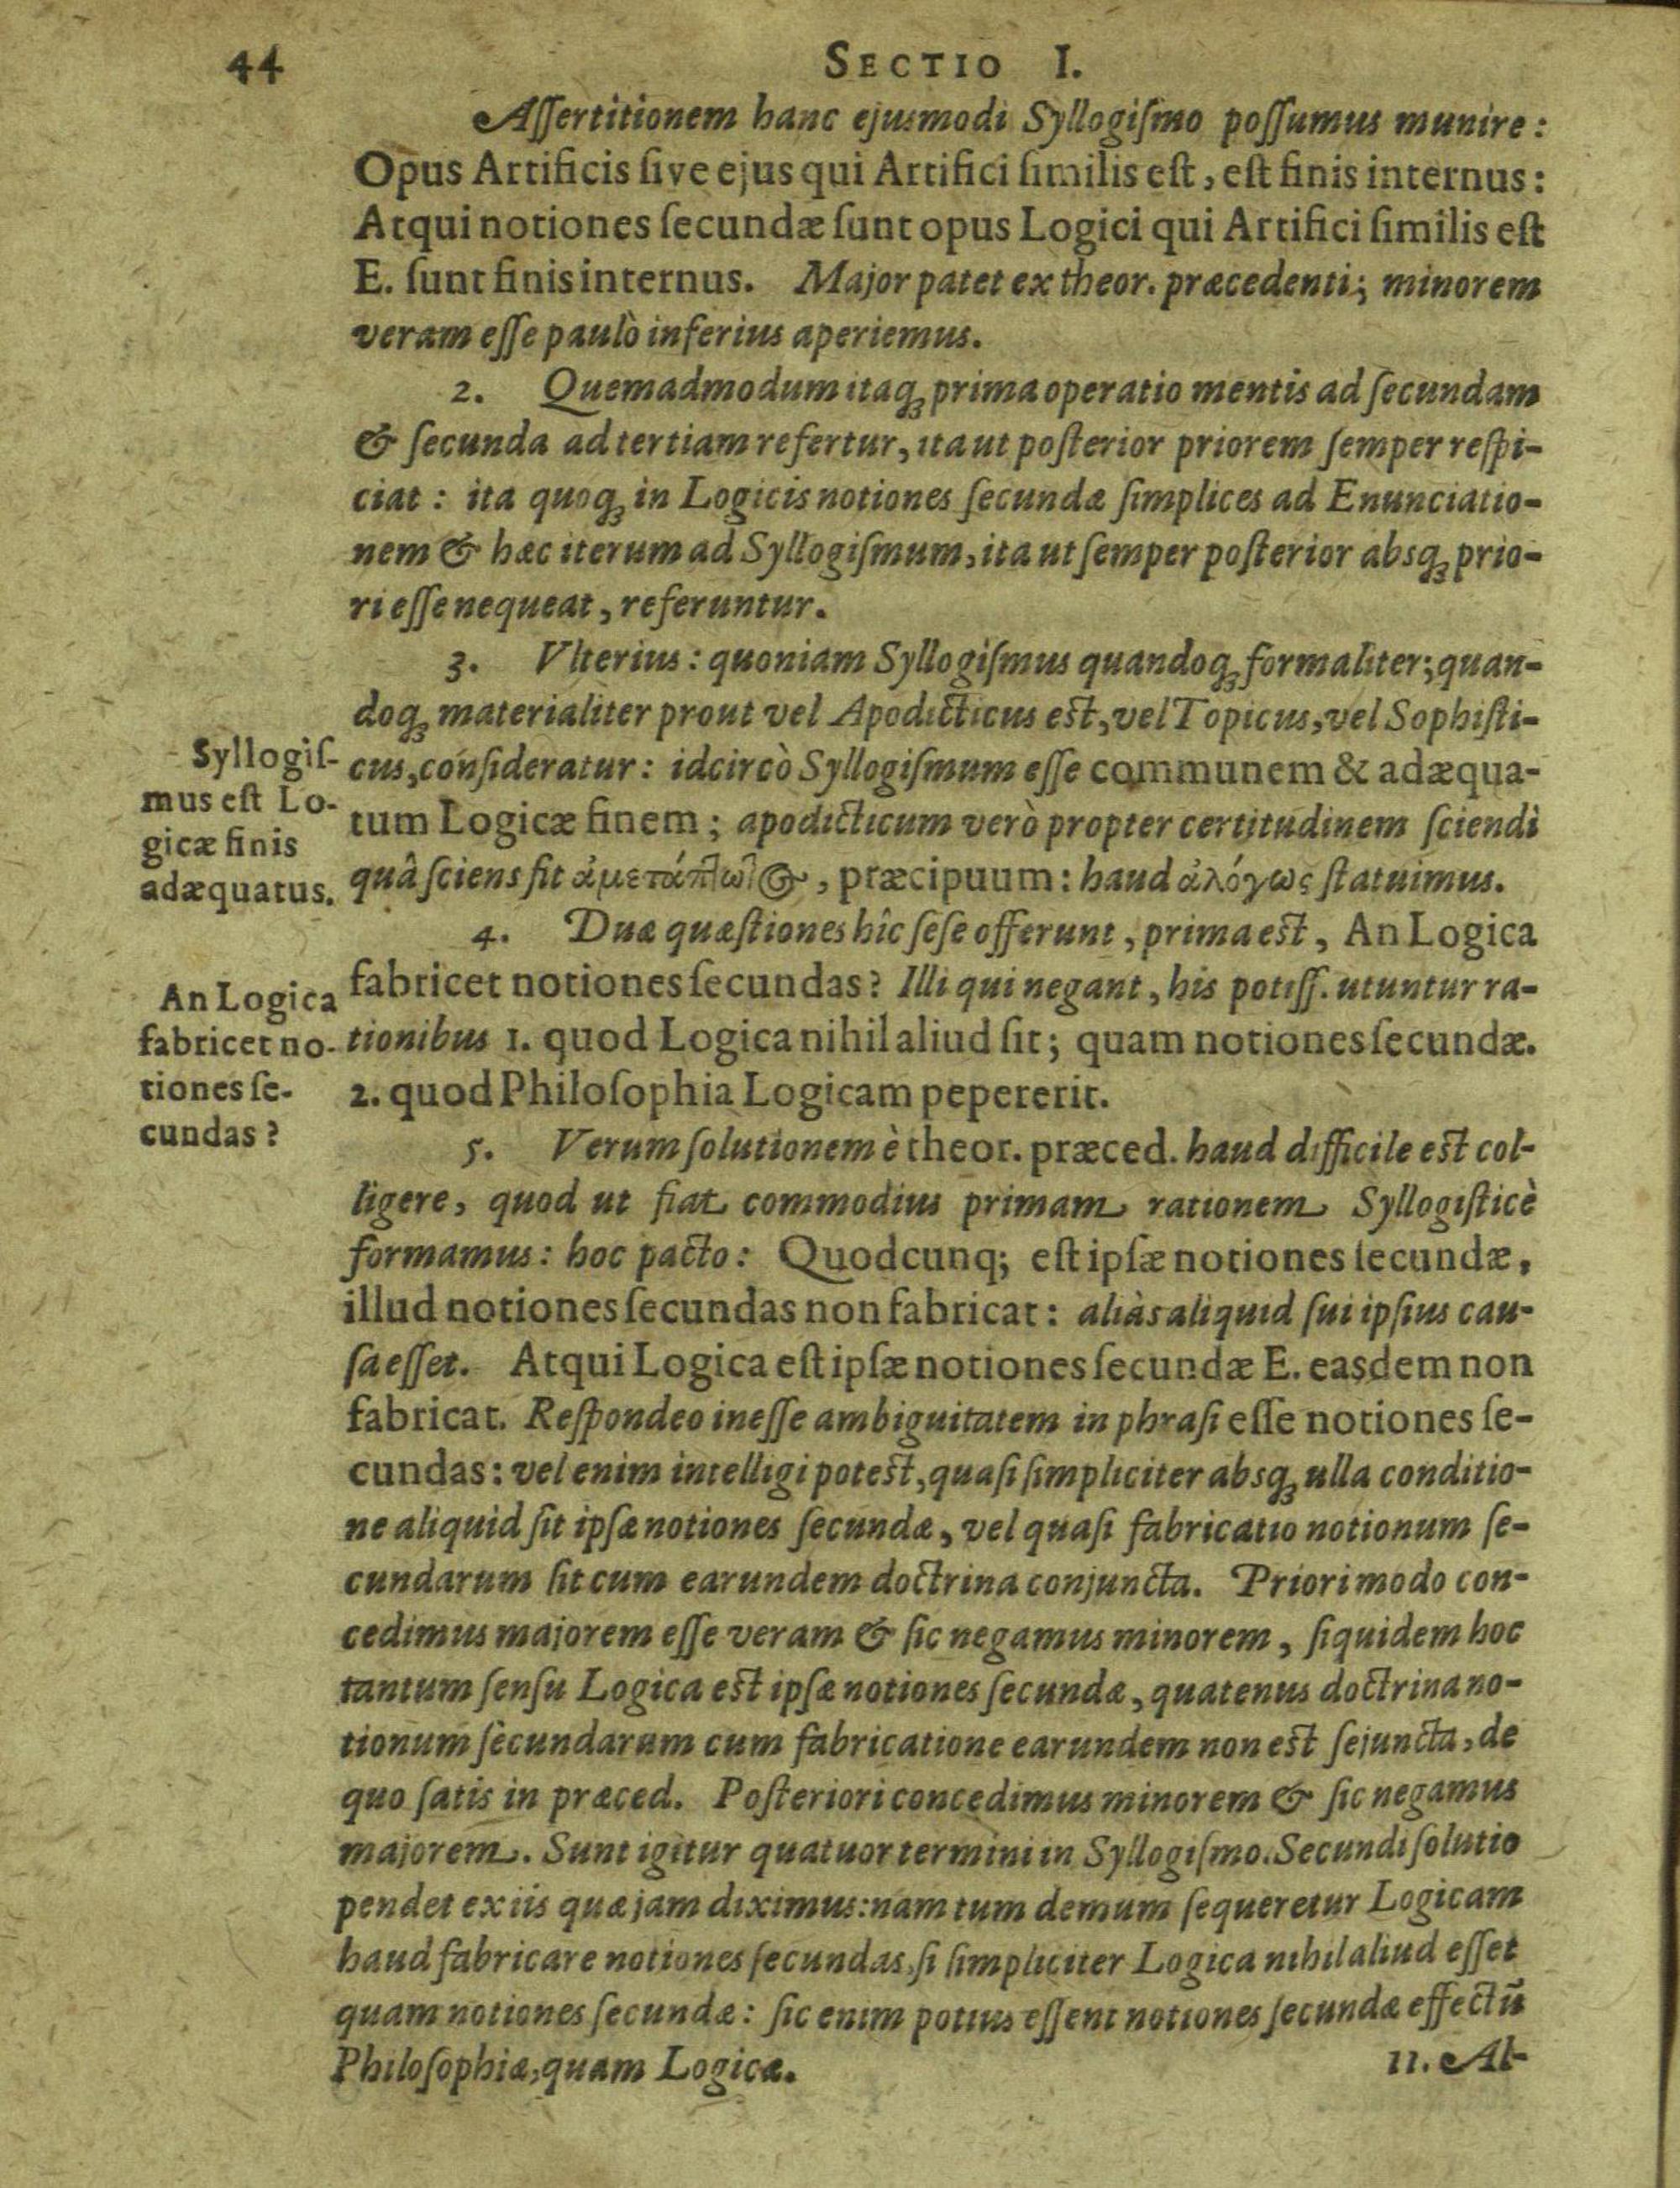 44 SECTIO I.
Aſſertitionem hanc ejusmodi Syllogiſmo poſſumus munire:
Opus Artificis ſive ejus qui Artifici ſimilis eſt, eſt finis internus:
Atqui notiones ſecundæ ſunt opus Logici qui Artifici ſimilis eſt
E. ſunt finis internus. Major patet ex theor. præcedenti; minorem
veram eſſe paulò inferius aperiemus.
2. Quemadmodum itaq; prima operatio mentis ad ſecundam
& ſecunda ad tertiam refertur, ita ut poſterior priorem ſemper reſpi-
ciat: ita quoq; in Logicis notiones ſecundæ ſimplices ad Enunciatio-
nem & hæc iterum ad Syllogiſmum, ita ut ſemper poſterior absq; prio-
ri eſſe nequeat, referuntur.
3. Vlterius: quoniam Syllogiſmus quandoq; formaliter; quan-
doq; materialiter prout vel Apodicticus eſt, vel Topicus, vel Sophiſti-
cus, conſideratur: idcircò Syllogiſmum eſſe communem & adæqua-
tum Logicæ finem; apodicticum verò propter certitudinem ſciendi
quâ ſciens fit ἀμετάπτωτος, præcipuum: haud ἀλόγως ſtatuimus.
Syllogiſ-
mus eſt Lo-
gicæ finis
adæquatus.
4. Duæ quæſtiones hîc ſeſe offerunt, prima eſt, An Logica
fabricet notiones ſecundas? Illi qui negant, his potiſſ. utuntur ra-
tionibus 1. quod Logica nihil aliud ſit; quam notiones ſecundæ.
2. quod Philoſophia Logicam pepererit.
An Logica
fabricet no-
tiones ſe-
cundas?
5. Verum ſolutionem è theor. præced. haud difficile eſt col-
ligere, quod ut fiat commodius primam rationem Syllogiſticè
formamus: hoc pacto: Quodcunq; eſt ipſæ notiones ſecundæ,
illud notiones ſecundas non fabricat: aliàs aliquid ſui ipſius cau-
ſa eſſet. Atqui Logica eſt ipſæ notiones ſecundæ E. easdem non
fabricat. Reſpondeo ineſſe ambiguitatem in phraſi eſſe notiones ſe-
cundas: vel enim intelligi poteſt, quaſi ſimpliciter absq; ulla conditio-
ne aliquid ſit ipſæ notiones ſecundæ, vel quaſi fabricatio notionum ſe-
cundarum ſit cum earundem doctrina conjuncta. Priori modo con-
cedimus majorem eſſe veram & ſic negamus minorem, ſiquidem hoc
tantum ſenſu Logica eſt ipſæ notiones ſecundæ, quatenus doctrina no-
tionum ſecundarum cum fabricatione earundem non eſt ſejuncta, de
quo ſatis in præced. Poſteriori concedimus minorem & ſic negamus
majorem. Sunt igitur quatuor termini in Syllogiſmo. Secundi ſolutio
pendet ex iis quæ jam diximus: nam tum demum ſequeretur Logicam
haud fabricare notiones ſecundas, ſi ſimpliciter Logica nihil aliud eſſet
quam notiones ſecundæ: ſic enim potius eſſent notiones ſecundæ effectū
Philoſophiæ, quam Logicæ.
11. At-